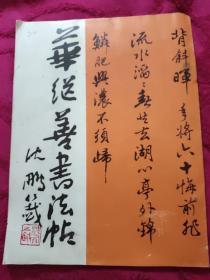 背斜暉 手將六十悔前非
流水滔滔春共去湖心亭外錦
鱗肥興濃不須歸
華從善書法帖
沈鵬籤